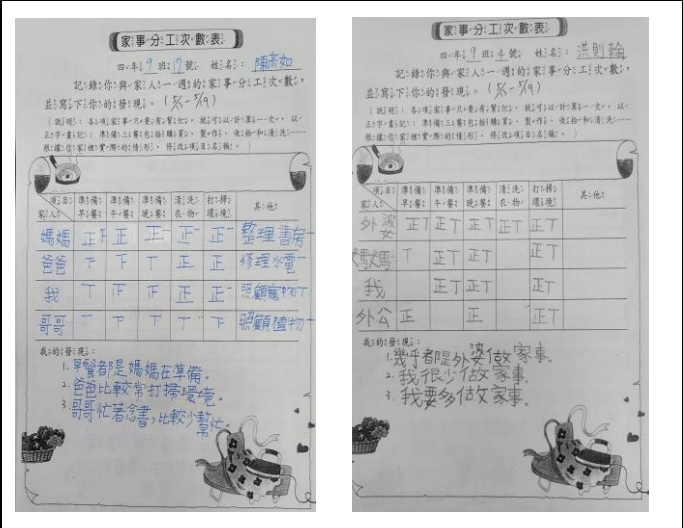 家事分工次數表
四年9班17號 姓名：陳彥如
記錄你與家人一週的家事分工次數，
並寫下你的發現。(5/3-5/9)
（說明：各項家事只要有幫忙，就可以計算一次。以
正字畫記；準備三餐包括購買、製作、收拾和清洗……
根據你家裡實際的情形，修改項目名稱。）
項目 家人 準備早餐 準備午餐 準備晚餐 清洗衣物 打掃環境 其他
媽媽 正下 正 正一 正一 正一 整理書房一
爸爸 下 下 丅 正 正 修理水電一
我 丅 正 下 正 正一 照顧寵物丅
哥哥 一 下 丅 丅 下 照顧植物一
我的發現：
1.早餐都是媽媽在準備。
2.爸爸比較常打掃環境。
3.哥哥忙著念書，比較少幫忙。
家事分工次數表
四年9班4號 姓名：洪則翰
記錄你與家人一週的家事分工次數，
並寫下你的發現。(5/3-5/9)
（說明：各項家事只要有幫忙，就可以計算一次。以
正字畫記；準備三餐包括購買、製作、收拾和清洗……
根據你家裡實際的情形，修改項目名稱。）
項目 家人 準備早餐 準備午餐 準備晚餐 清洗衣物 打掃環境 其他
外婆 正丅 正丅 正丅 正丅 正丅
媽媽 丅 正丅 正丅 正丅
我 正丅 正丅 正丅
外公 正 正 正丅
我的發現：
1.幾乎都是外婆做家事。
2.我很少做家事。
3.我要多做家事。